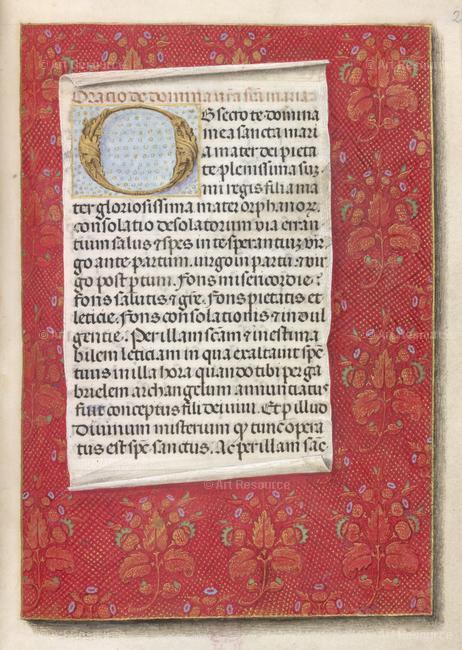 Oratio de domina nr̄a sc̄a maria
OBsecro te domina
mea sancta mari
a mater dei pieta
te plenissima sum
mi regis filia ma
ter gloriosissima mater orphanoꝝ.
consolatio desolatorum via erran
tium salus ⁊ spes in te sperantiuꝫ vir
go ante partum. virgo in partu ⁊ vir
go post ꝑtum. fons misericordie:
fons salutis ⁊ gr̄e. fons pietatis et
leticie. fons consolationis ⁊ in dul
gentie. Per illam sc̄am ⁊ inestima
bilem leticiam in qua exaltauit sp̄c
tuus in illa hora quando tibi per ga
brielem archangelum annunciatus
⁊ conceptus filiꝰ dei uiui. Et ꝑ illud
Diuinum misterium qꝫ tunc opera
tus est sp̄c sanctus. Ac per illam sac
2
© Art Resource
© Art Resource
© Art Resource
© Art Resource
© Art Resource